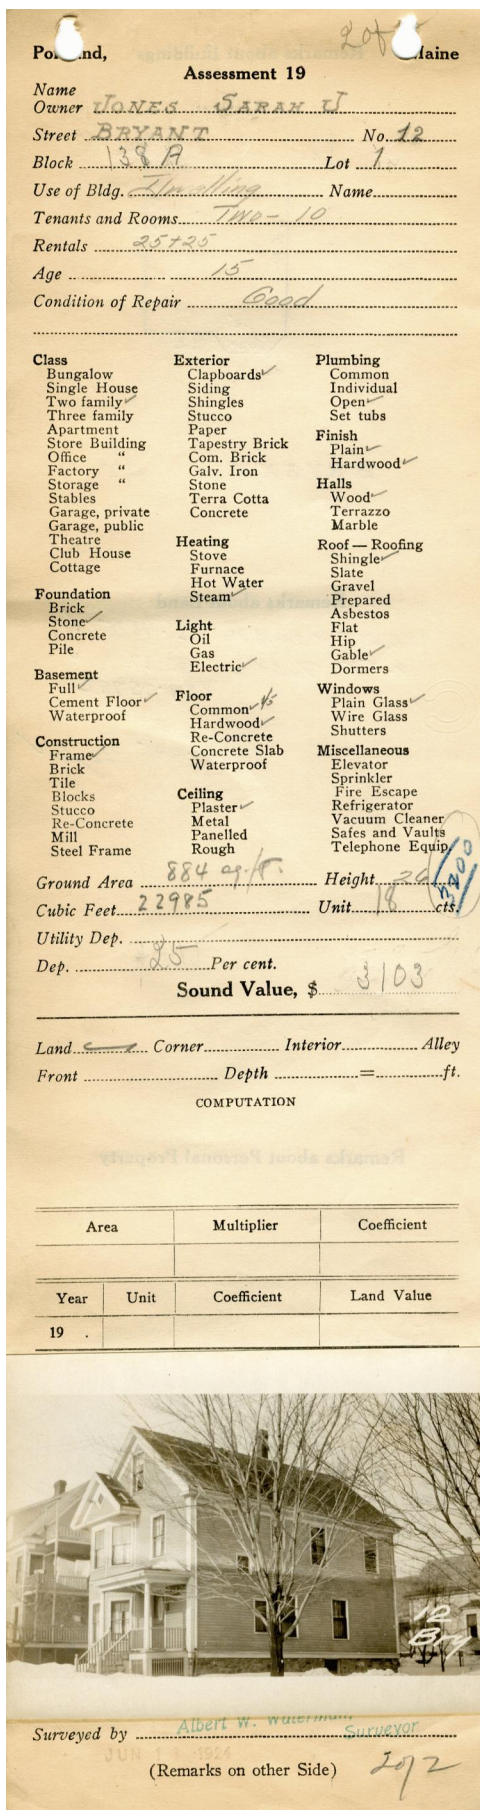 2 of 2
Portland, Maine
Assessment 19
Name
Owner JONES SARAH J
Street BRYANT No. 12
Block 138 A Lot 1
Use of Bldg. Dwelling Name
Tenants and Rooms Two - 10
Rentals 25+25
Age 15
Condition of Repair Good
Class
Bungalow
Single House
Two family ✓
Three family
Apartment
Store Building
Office "
Factory "
Storage "
Stables
Garage, private
Garage, public
Theatre
Club House
Cottage
Foundation
Brick
Stone ✓
Concrete
Pile
Basement
Full ✓
Cement Floor ✓
Waterproof
Construction
Frame ✓
Brick
Tile
Blocks
Stucco
Re-Concrete
Mill
Steel Frame
Exterior
Clapboards ✓
Siding
Shingles
Stucco
Paper
Tapestry Brick
Com. Brick
Galv. Iron
Stone
Terra Cotta
Concrete
Heating
Stove
Furnace
Hot Water
Steam ✓
Light
Oil
Gas
Electric ✓
Floor
Common ✓
Hardwood ✓
Re-Concrete
Concrete Slab
Waterproof
Ceiling
Plaster ✓
Metal
Panelled
Rough
Plumbing
Common
Individual
Open ✓
Set tubs
Finish
Plain ✓
Hardwood ✓
Halls
Wood ✓
Terrazzo
Marble
Roof — Roofing
Shingle ✓
Slate
Gravel
Prepared
Asbestos
Flat
Hip
Gable ✓
Dormers
Windows
Plain Glass ✓
Wire Glass
Shutters
Miscellaneous
Elevator
Sprinkler
Fire Escape
Refrigerator
Vacuum Cleaner
Safes and Vaults
Telephone Equip.
3200
Ground Area 884 sq. ft. Height 26
Cubic Feet 22985 Unit 18 cts.
Utility Dep.
Dep. 25 Per cent.
Sound Value, $ 3103
Land Corner Interior Alley
Front Depth = ft.
COMPUTATION
Area Multiplier Coefficient
Year Unit Coefficient Land Value
19 .
12
Bry
Surveyed by Albert W. Waterman, Surveyor
JUN 1 1924
(Remarks on other Side) 2 of 2